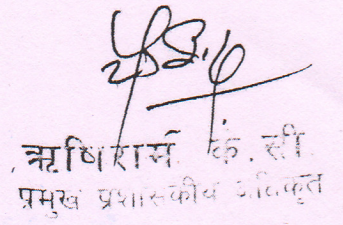 ऋषिराम के. सी.
प्रमुख प्रशासकीय अधिकृत